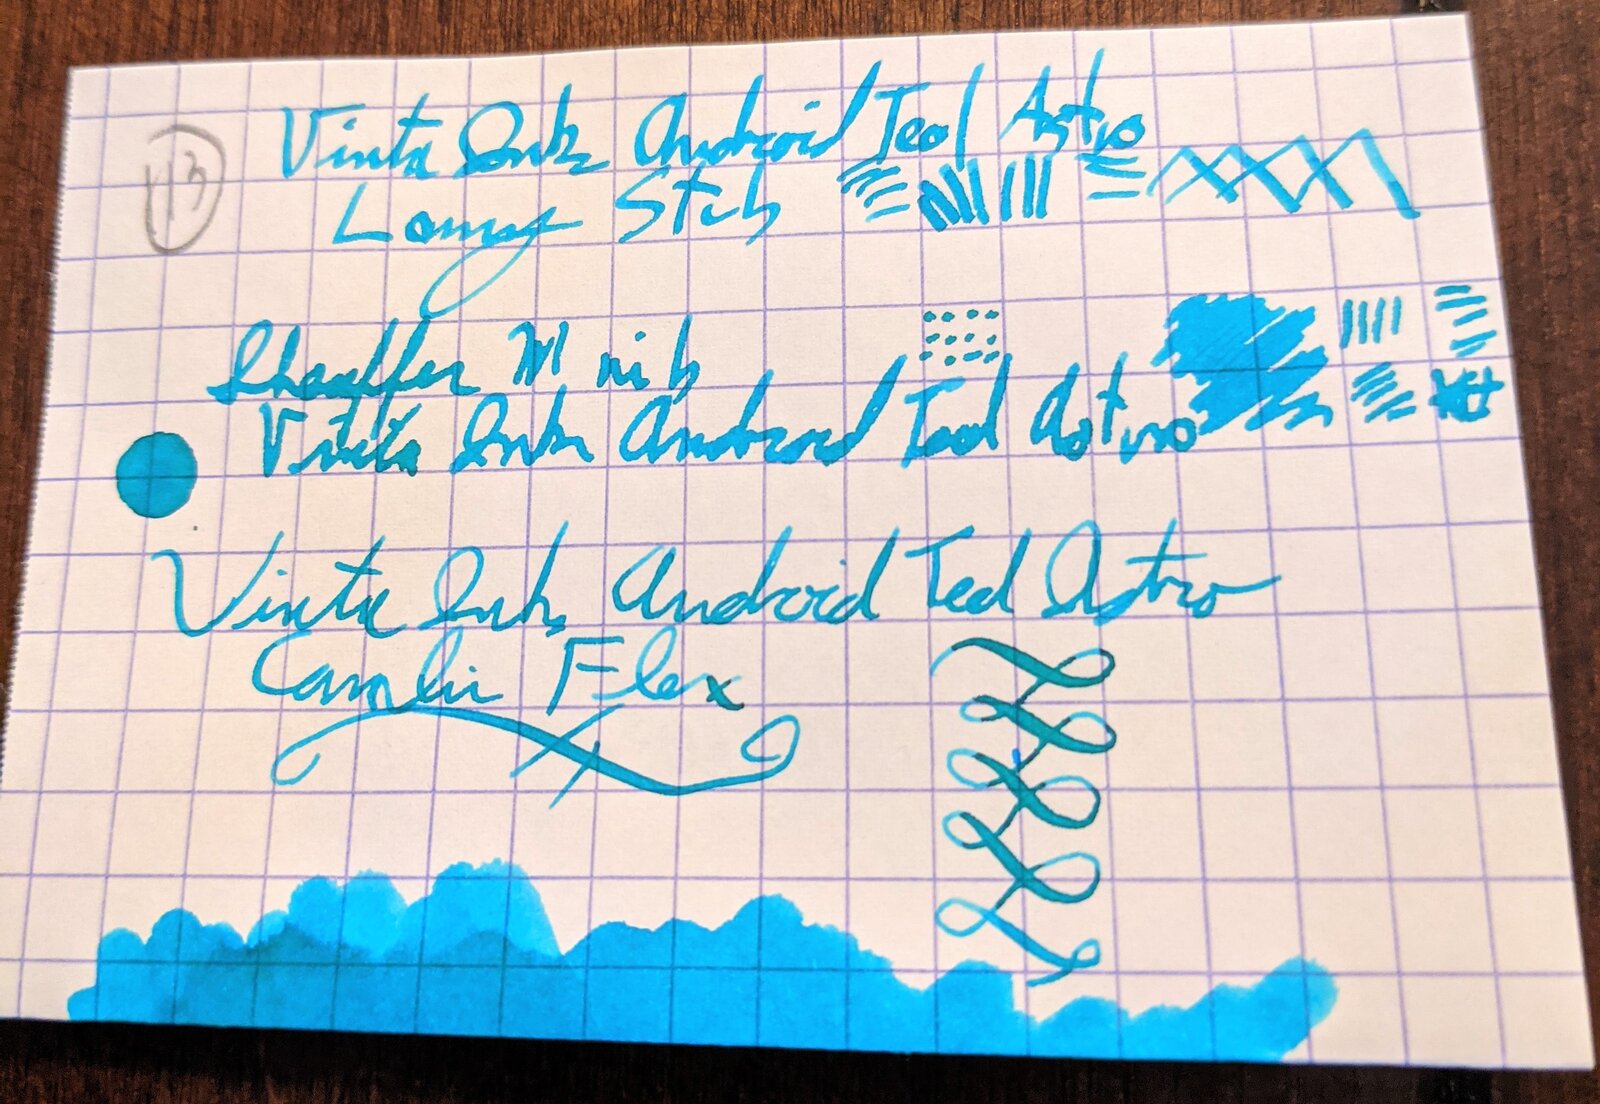 113
Vinta Inks Android Teal Astro
Lamy Stub
Sheaffer M nib
Vinta Inks Android Teal Astro
Vinta Inks Android Teal Astro
Camlin Flex